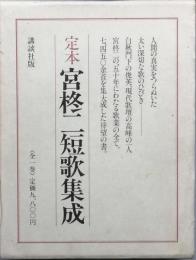 人間の真実をつらぬいた
太い深切な歌のひびき――
白秋門下の俊英、現代歌壇の高峰の一人
宮柊二の五十年にわたる歌業の全て、
七、四五〇余首を集大成した待望の書。
定本
宮柊二短歌集成
講談社版
〈全一巻〉定価九、八〇〇円